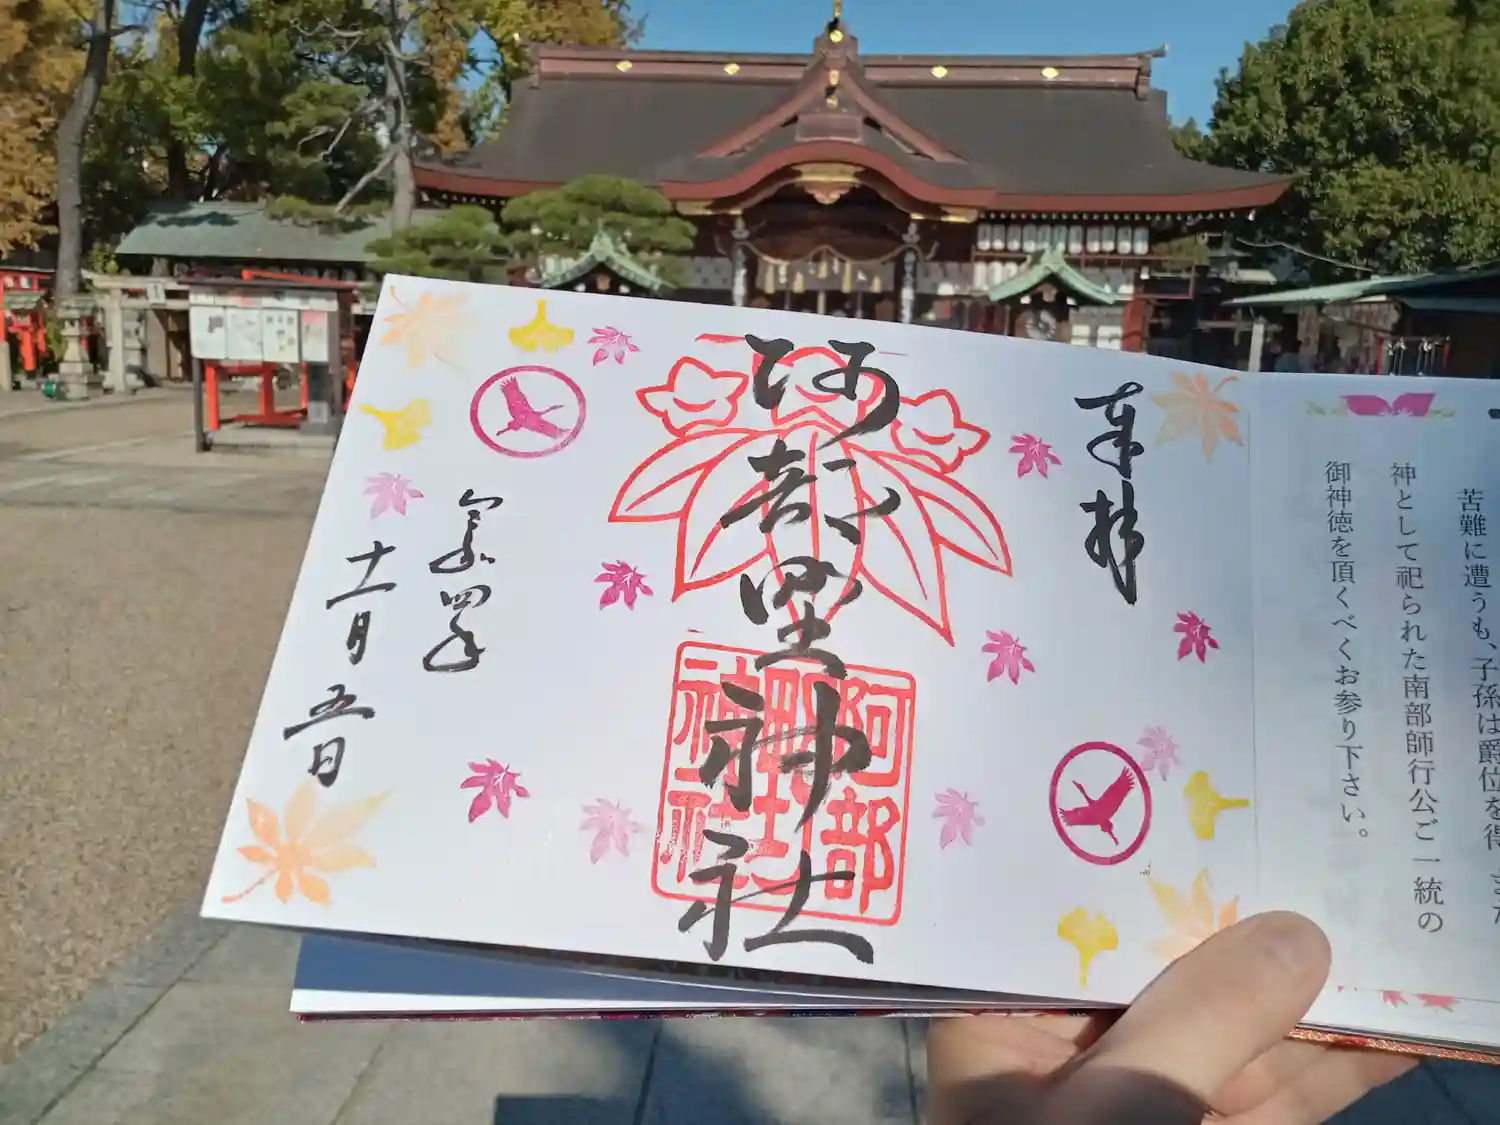 苦難に遭うも、子孫は爵位を得、また
神として祀られた南部師行公ご一統の
御神徳を頂くべくお参り下さい。
奉拝
阿部野神社
阿部野神社
令和四年
十一月五日